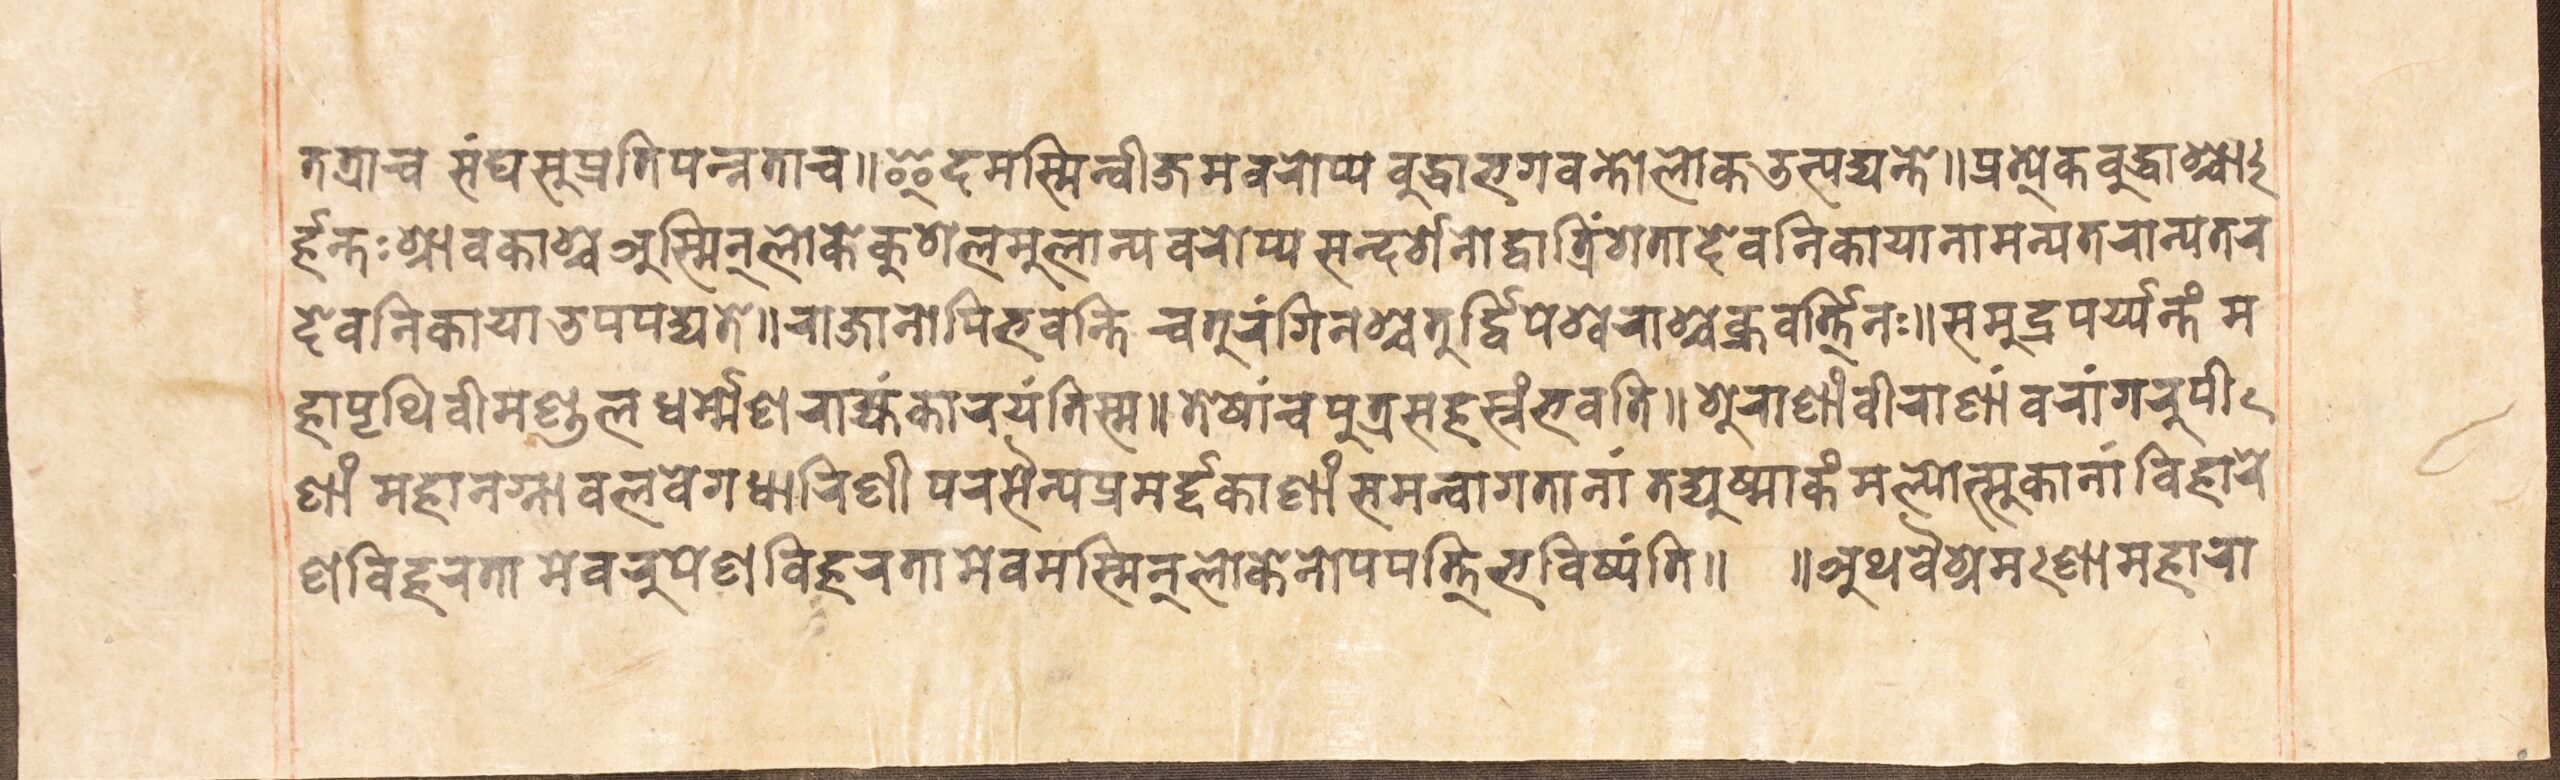 तत्राच संघसुप्रतिपन्नताच॥इदमस्मिन्वीजमवरोप्य वुद्धाभगवन्तोलोकउत्पद्यन्ते॥प्रत्येकवुद्धाश्चो
र्हन्तःश्रावकाश्च अस्मिन्लोके कुशलमुलान्यवरोप्य सन्दर्शनोद्वात्रिंशतादेवनिकायानामन्यतरान्यतर
देवनिकायाउपपद्यते॥राजानोपिभवन्ति चतुरंगिनश्चतुर्द्विपेश्वराश्चक्रवर्त्तिनः॥समुद्रपर्य्यन्तं म
हापृथिवीमण्डलधर्म्मेणराज्यंकारयंतिस्म॥तेषांचपुत्रसहस्रंभवति॥शुराणांवीराणां वरांगरुपी
णां महानग्नावलवेगधारिणी परसैन्यप्रमर्द्दकाणां समन्वागतानां तद्युष्माकंमल्पोत्सुकानां विहारे
णविहरतामेवरुपेणविहरतामेवमस्मिन्लोकेनोपपत्तिभविष्यंति॥ ॥अथवैश्रमणामहारा